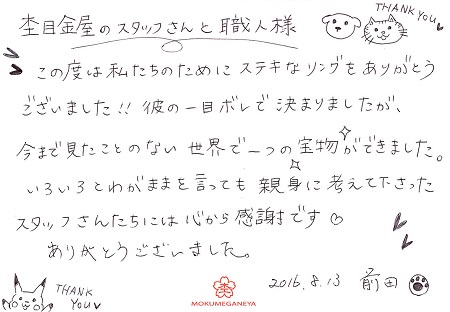 杢目金屋のスタッフさんと職人様
THANK YOU♥
この度は私たちのために ステキなリングをありがとう
ございました!! 彼の一目ボレで決まりましたが、
今まで見たことのない世界で一つの宝物ができました。
いろいろとわがままを言っても親身に考えて下さった
スタッフさんたちには心から感謝です♡
ありがとうございました。
THANK YOU♥
MOKUMEGANEYA
2016.8.13 前田